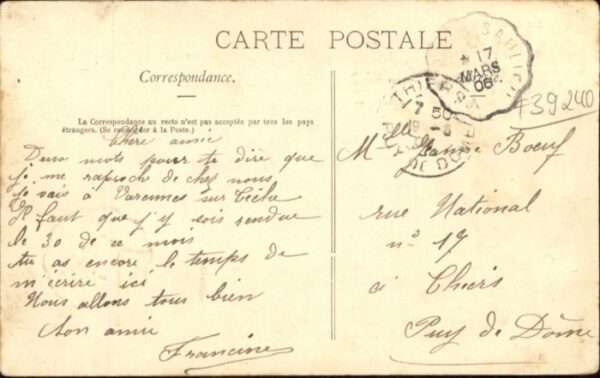 CARTE POSTALE
Correspondance.
La Correspondance au recto n'est pas acceptée par tous les pays
étrangers. (Se renseigner à la Poste.)
Chère amie
Deux mots pour te dire que
je me raproch de chez nous
je vais à Varennes sur
Il faut que j'y sois rendue
le 30 de ce mois
tu as encore le temps de
m'écrire ici
Nous allons tous bien
ton amie
Francine
17
MARS
06
THIERS
7 50
DE DOME
F39240
Mlle Boeuf
rue National
n° 19
à Thiers
Puy de Dôme